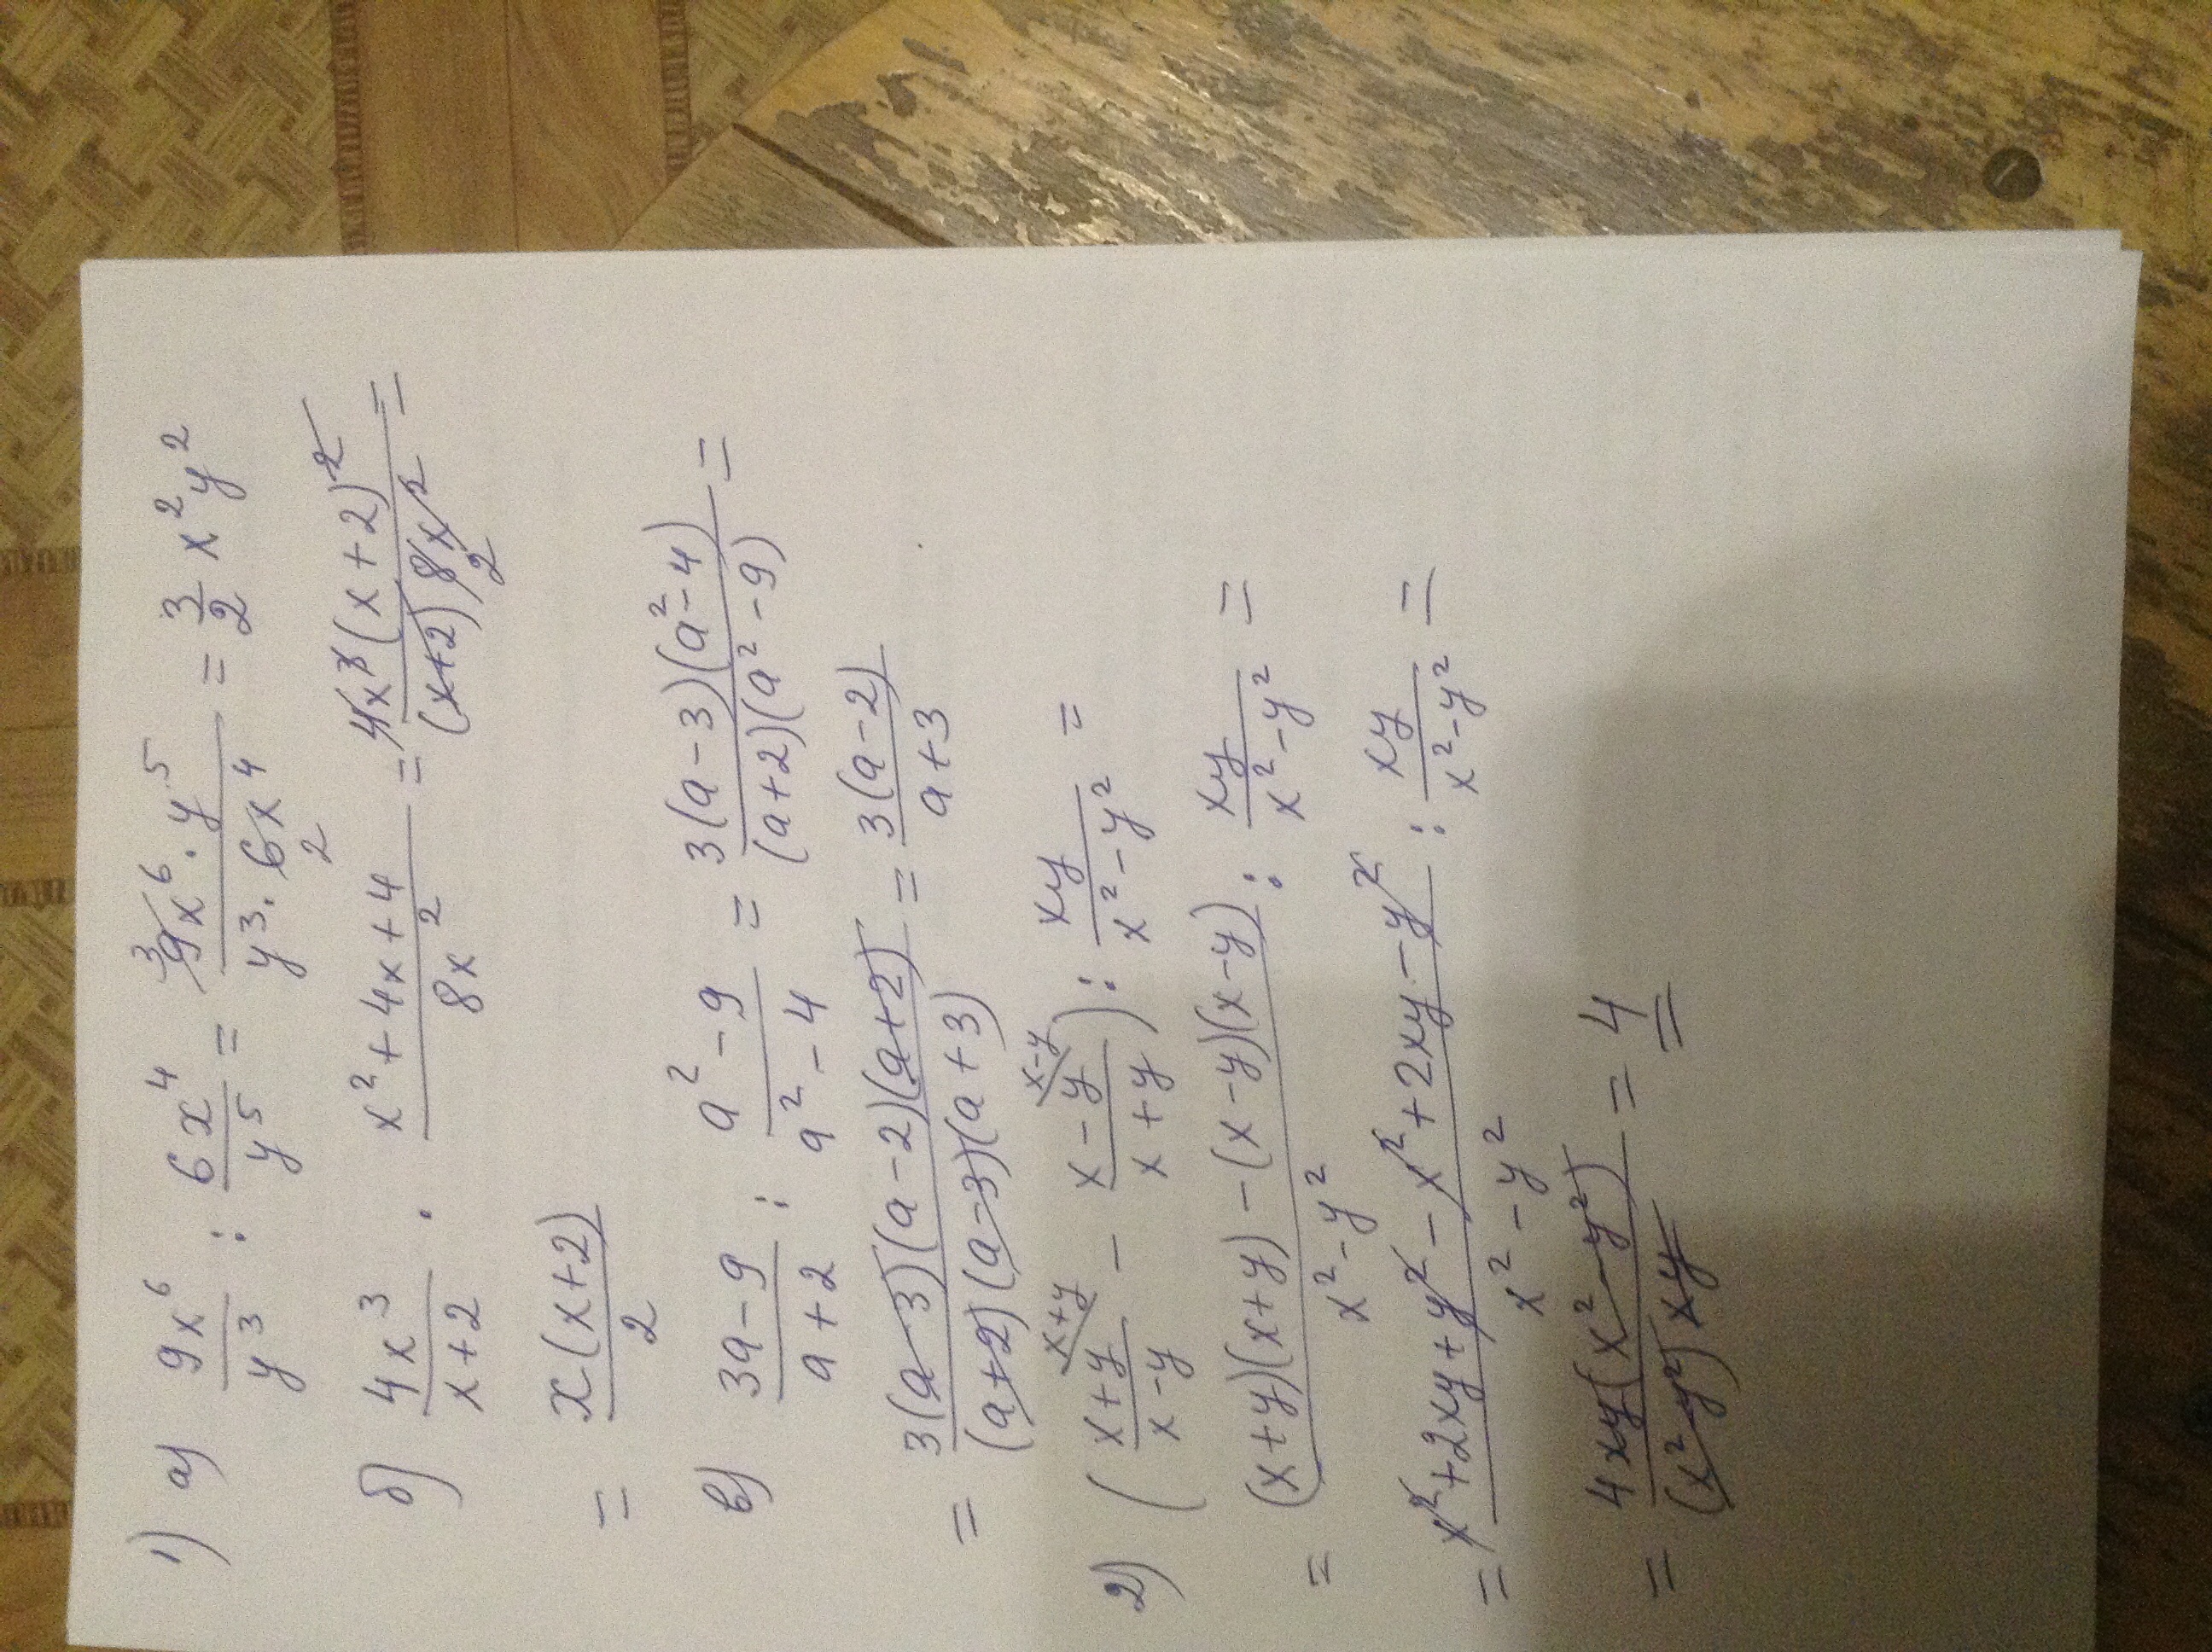 1) а) 9x⁶/y³ : 6x⁴/y⁵ = ³9x⁶·y⁵/y³·6x⁴ 2 = 3/2 x²y²
б) 4x³/x+2 · x²+4x+4/8x² = 4x³(x+2)²/(x+2)8x² 2 =
= x(x+2)/2
в) 3a-9/a+2 : a²-9/a²-4 = 3(a-3)(a²-4)/(a+2)(a²-9) =
= 3(a-3)(a-2)(a+2)/(a+2)(a-3)(a+3) = 3(a-2)/a+3
2) (x+y/x-y x+y/ - x-y/x+y x-y/) : xy/x²-y² =
= (x+y)(x+y)-(x-y)(x-y)/x²-y² : xy/x²-y² =
= x²+2xy+y²-x²+2xy-y²/x²-y² : xy/x²-y² =
= 4xy(x²-y²)/(x²-y²)xy = 4